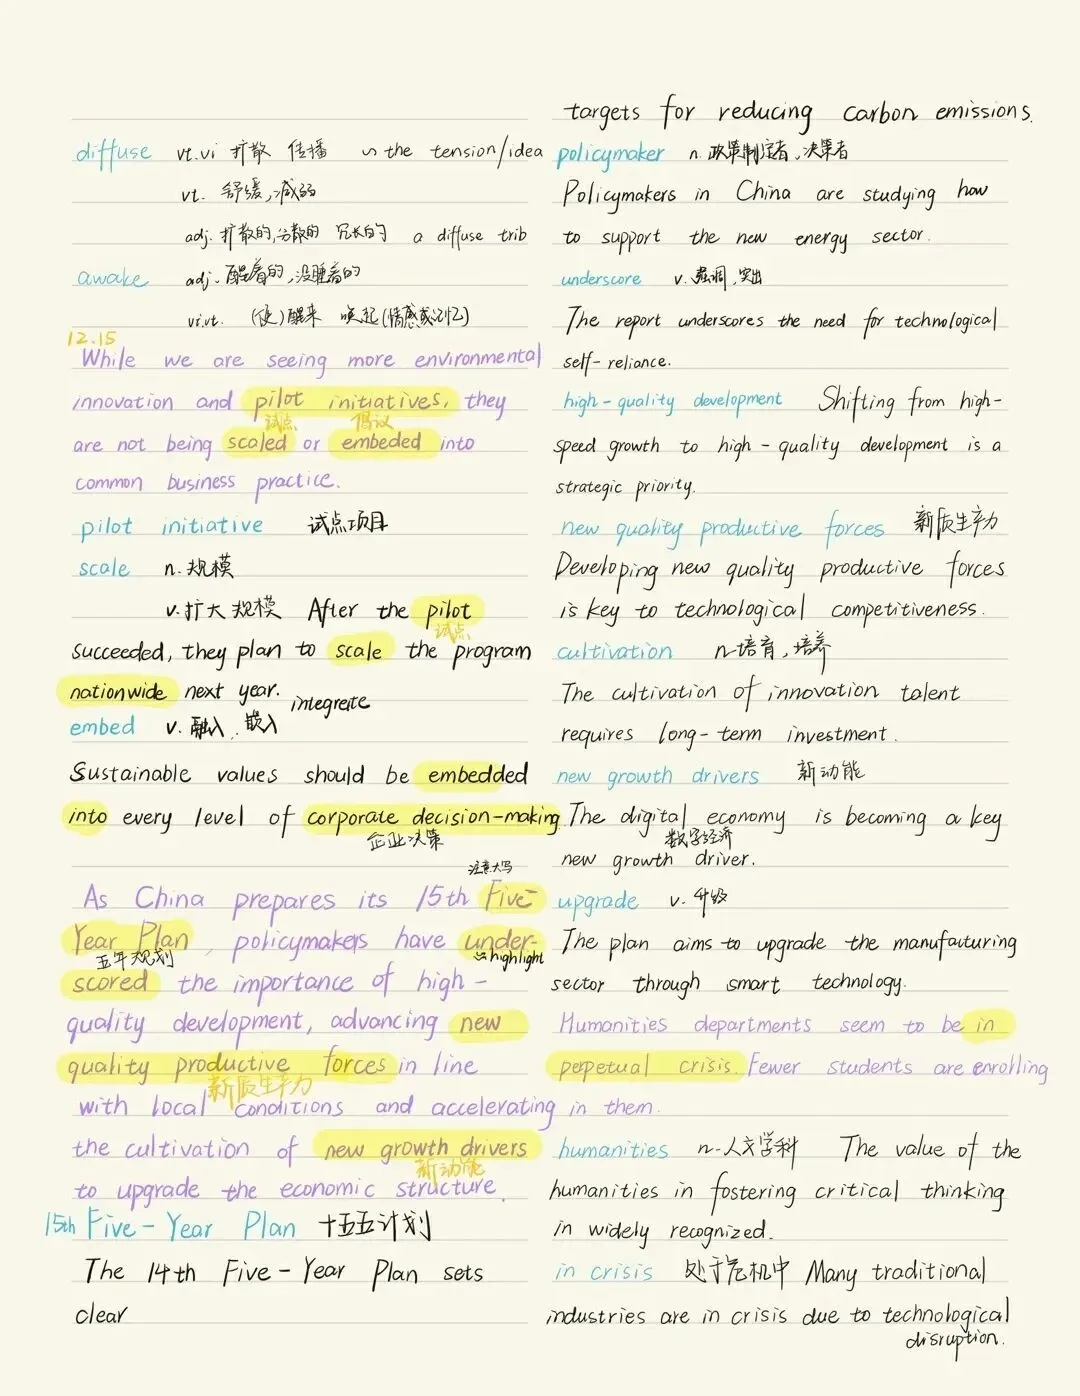 diffuse vt.vi 扩散 传播 ~ the tension/idea
vt. 舒缓,减弱
adj. 扩散的,分散的 冗长的 a diffuse trib
awake adj. 醒着的,没睡着的
vi.vt. (使)醒来 唤起(情感或记忆)
12.15
While we are seeing more environmental
innovation and pilot initiatives, they
试点 倡议
are not being scaled or embeded into
common business practice.
pilot initiative 试点项目
scale n. 规模
v. 扩大规模 After the pilot
试点
succeeded, they plan to scale the program
nationwide next year.
integrete
embed v. 融入, 嵌入
Sustainable values should be embedded
into every level of corporate decision-making.
企业决策
注意大写
As China prepares its 15th Five-
Year Plan, policymakers have under-
五年规划 ~highlight
scored the importance of high-
quality development, advancing new
quality productive forces in line
新质生产力
with local conditions and accelerating
the cultivation of new growth drivers
新动能
to upgrade the economic structure.
15th Five-Year Plan 十五五计划
The 14th Five-Year Plan sets
clear
targets for reducing carbon emissions.
policymaker n. 政策制定者,决策者
Policymakers in China are studying how
to support the new energy sector.
underscore v. 强调,突出
The report underscores the need for technological
self-reliance.
high-quality development Shifting from high-
speed growth to high-quality development is a
strategic priority.
new quality productive forces 新质生产力
Developing new quality productive forces
is key to technological competitiveness.
cultivation n. 培育,培养
The cultivation of innovation talent
requires long-term investment.
new growth drivers 新动能
The digital economy is becoming a key
数字经济
new growth driver.
upgrade v. 升级
The plan aims to upgrade the manufacturing
sector through smart technology.
Humanities departments seem to be in
perpetual crisis. Fewer students are enrolling
in them.
humanities n. 人文学科 The value of the
humanities in fostering critical thinking
in widely recognized.
in crisis 处于危机中 Many traditional
industries are in crisis due to technological
disruption.